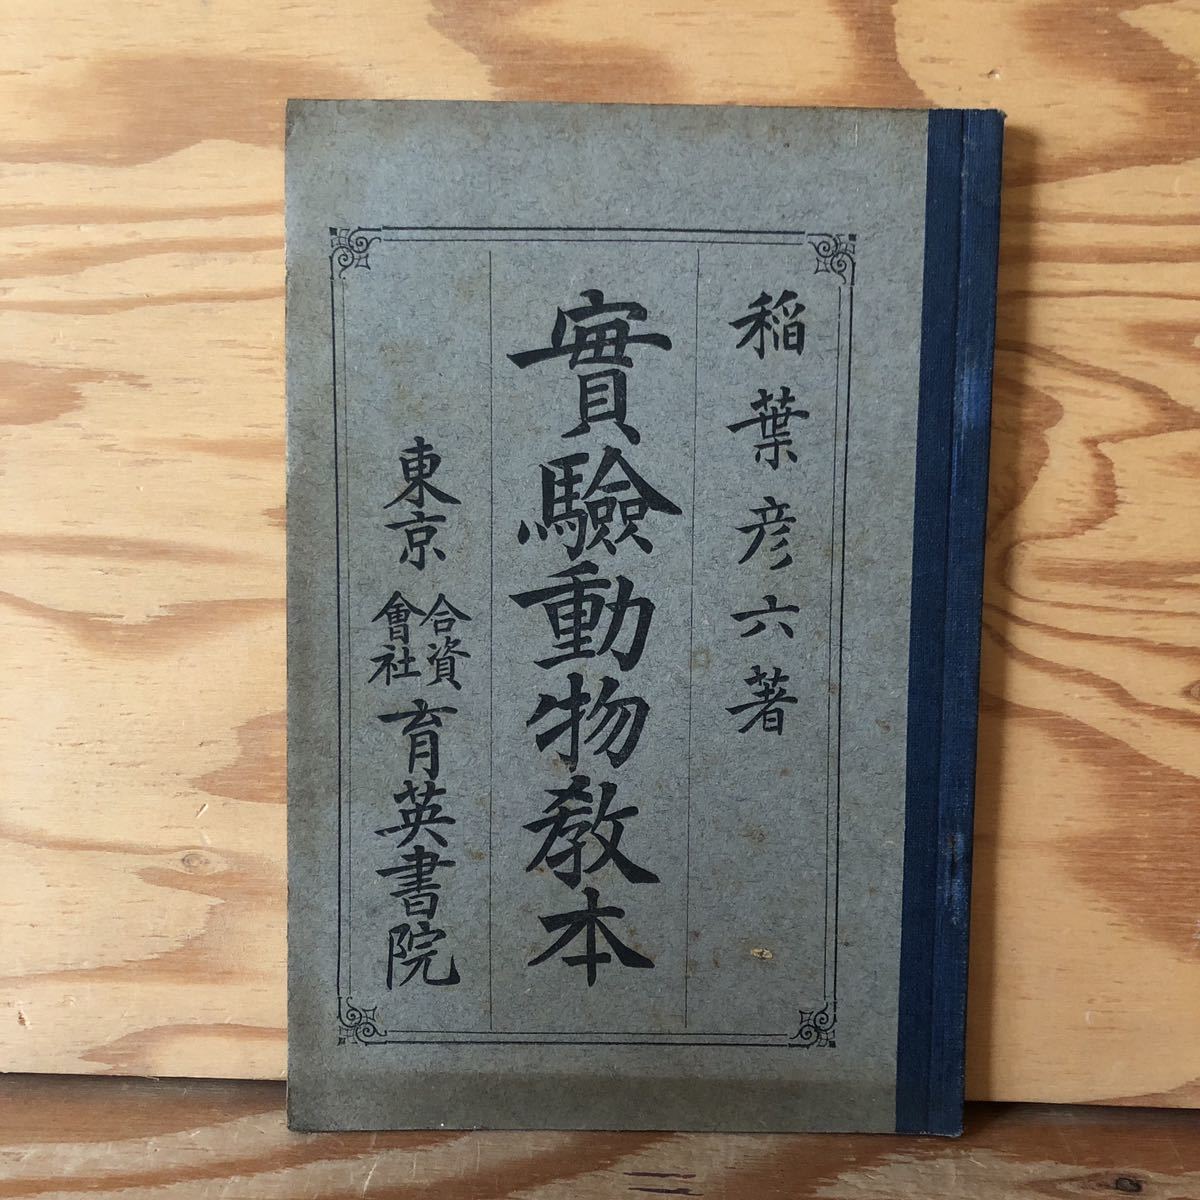 稲葉彦六著
實驗動物教本
東京 合資會社 育英書院